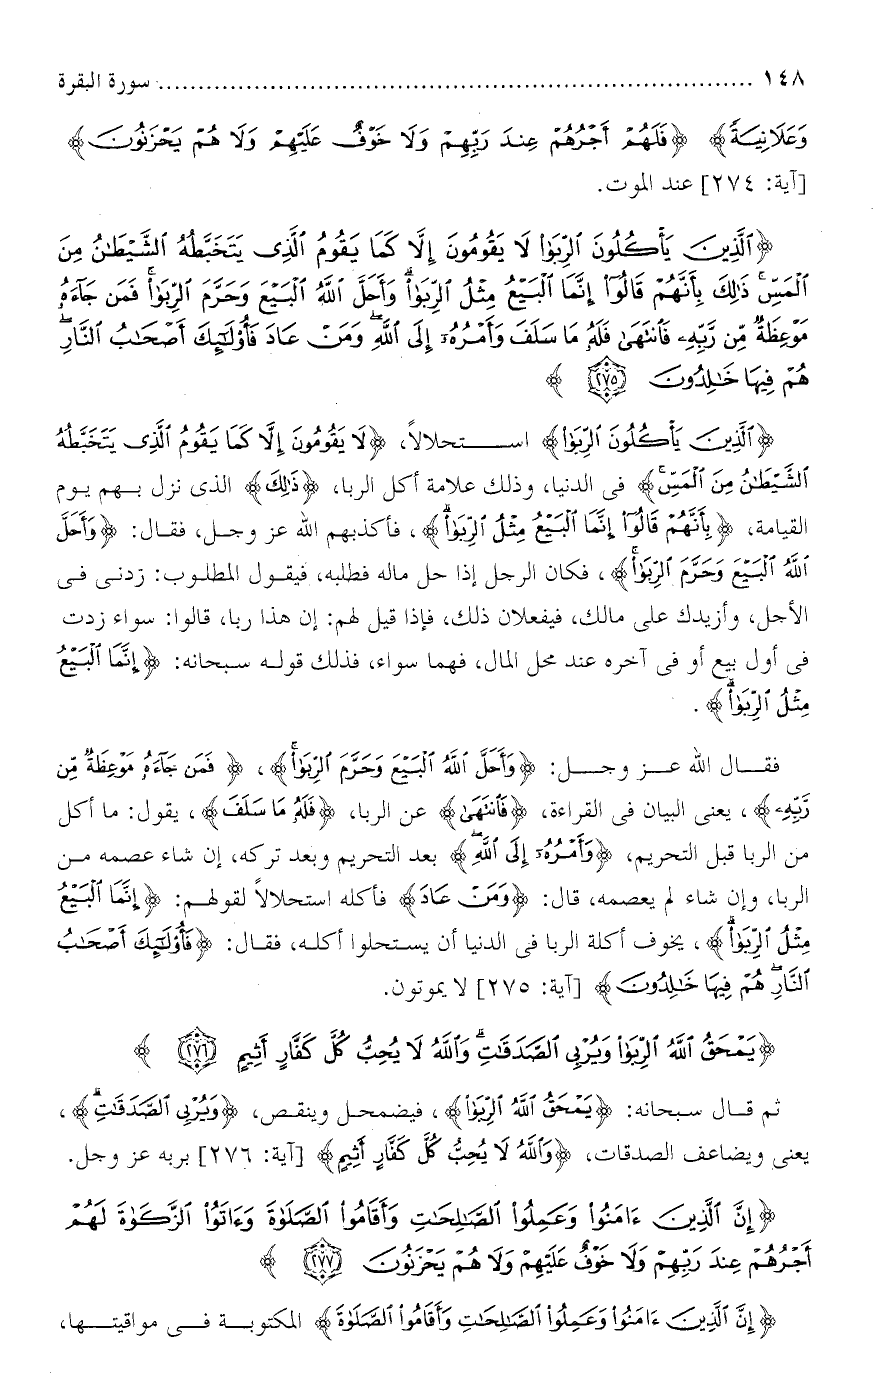 ١٤٨ ........................................................................ سورة البقرة
وَعَلَانِيَةً﴾ ﴿فَلَهُمْ أَجْرُهُمْ عِندَ رَبِّهِمْ وَلَا خَوْفٌ عَلَيْهِمْ وَلَا هُمْ يَحْزَنُونَ﴾
[آية: ٢٧٤] عند الموت.
﴿ٱلَّذِينَ يَأْكُلُونَ ٱلرِّبَوٰا۟ لَا يَقُومُونَ إِلَّا كَمَا يَقُومُ ٱلَّذِى يَتَخَبَّطُهُ ٱلشَّيْطَٰنُ مِنَ
ٱلْمَسِّ ۚ ذَٰلِكَ بِأَنَّهُمْ قَالُوٓا۟ إِنَّمَا ٱلْبَيْعُ مِثْلُ ٱلرِّبَوٰا۟ ۗ وَأَحَلَّ ٱللَّهُ ٱلْبَيْعَ وَحَرَّمَ ٱلرِّبَوٰا۟ ۚ فَمَن جَآءَهُۥ
مَوْعِظَةٌ مِّن رَّبِّهِۦ فَٱنتَهَىٰ فَلَهُۥ مَا سَلَفَ وَأَمْرُهُۥٓ إِلَى ٱللَّهِ ۖ وَمَنْ عَادَ فَأُو۟لَٰٓئِكَ أَصْحَٰبُ ٱلنَّارِ ۖ
هُمْ فِيهَا خَٰلِدُونَ ٢٧٥ ﴾
﴿ٱلَّذِينَ يَأْكُلُونَ ٱلرِّبَوٰا۟﴾ استحلالاً، ﴿لَا يَقُومُونَ إِلَّا كَمَا يَقُومُ ٱلَّذِى يَتَخَبَّطُهُ
ٱلشَّيْطَٰنُ مِنَ ٱلْمَسِّ ۚ﴾ فى الدنيا، وذلك علامة أكل الربا، ﴿ذَٰلِكَ﴾ الذى نزل بهم يوم
القيامة، ﴿بِأَنَّهُمْ قَالُوٓا۟ إِنَّمَا ٱلْبَيْعُ مِثْلُ ٱلرِّبَوٰا۟ ۗ﴾، فأكذبهم الله عز وجل، فقال: ﴿وَأَحَلَّ
ٱللَّهُ ٱلْبَيْعَ وَحَرَّمَ ٱلرِّبَوٰا۟ ۚ﴾، فكان الرجل إذا حل ماله فطلبه، فيقول المطلوب: زدنى فى
الأجل، وأزيدك على مالك، فيفعلان ذلك، فإذا قيل لهم: إن هذا ربا، قالوا: سواء زدت
فى أول بيع أو فى آخره عند محل المال، فهما سواء، فذلك قوله سبحانه: ﴿إِنَّمَا ٱلْبَيْعُ
مِثْلُ ٱلرِّبَوٰا۟ ۗ﴾.
فقال الله عز وجل: ﴿وَأَحَلَّ ٱللَّهُ ٱلْبَيْعَ وَحَرَّمَ ٱلرِّبَوٰا۟ ۚ﴾، ﴿فَمَن جَآءَهُۥ مَوْعِظَةٌ مِّن
رَّبِّهِۦ﴾، يعنى البيان فى القراءة، ﴿فَٱنتَهَىٰ﴾ عن الربا، ﴿فَلَهُۥ مَا سَلَفَ﴾، يقول: ما أكل
من الربا قبل التحريم، ﴿وَأَمْرُهُۥٓ إِلَى ٱللَّهِ ۖ﴾ بعد التحريم وبعد تركه، إن شاء عصمه من
الربا، وإن شاء لم يعصمه، قال: ﴿وَمَنْ عَادَ﴾ فأكله استحلالاً لقولهم: ﴿إِنَّمَا ٱلْبَيْعُ
مِثْلُ ٱلرِّبَوٰا۟ ۗ﴾، يخوف أكلة الربا فى الدنيا أن يستحلوا أكله، فقال: ﴿فَأُو۟لَٰٓئِكَ أَصْحَٰبُ
ٱلنَّارِ ۖ هُمْ فِيهَا خَٰلِدُونَ﴾ [آية: ٢٧٥] لا يموتون.
﴿يَمْحَقُ ٱللَّهُ ٱلرِّبَوٰا۟ وَيُرْبِى ٱلصَّدَقَٰتِ ۗ وَٱللَّهُ لَا يُحِبُّ كُلَّ كَفَّارٍ أَثِيمٍ ٢٧٦ ﴾
ثم قال سبحانه: ﴿يَمْحَقُ ٱللَّهُ ٱلرِّبَوٰا۟﴾، فيضمحل وينقص، ﴿وَيُرْبِى ٱلصَّدَقَٰتِ ۗ﴾،
يعنى ويضاعف الصدقات، ﴿وَٱللَّهُ لَا يُحِبُّ كُلَّ كَفَّارٍ أَثِيمٍ﴾ [آية: ٢٧٦] بربه عز وجل.
﴿إِنَّ ٱلَّذِينَ ءَامَنُوا۟ وَعَمِلُوا۟ ٱلصَّٰلِحَٰتِ وَأَقَامُوا۟ ٱلصَّلَوٰةَ وَءَاتَوُا۟ ٱلزَّكَوٰةَ لَهُمْ
أَجْرُهُمْ عِندَ رَبِّهِمْ وَلَا خَوْفٌ عَلَيْهِمْ وَلَا هُمْ يَحْزَنُونَ ٢٧٧ ﴾
﴿إِنَّ ٱلَّذِينَ ءَامَنُوا۟ وَعَمِلُوا۟ ٱلصَّٰلِحَٰتِ وَأَقَامُوا۟ ٱلصَّلَوٰةَ﴾ المكتوبة فى مواقيتها،